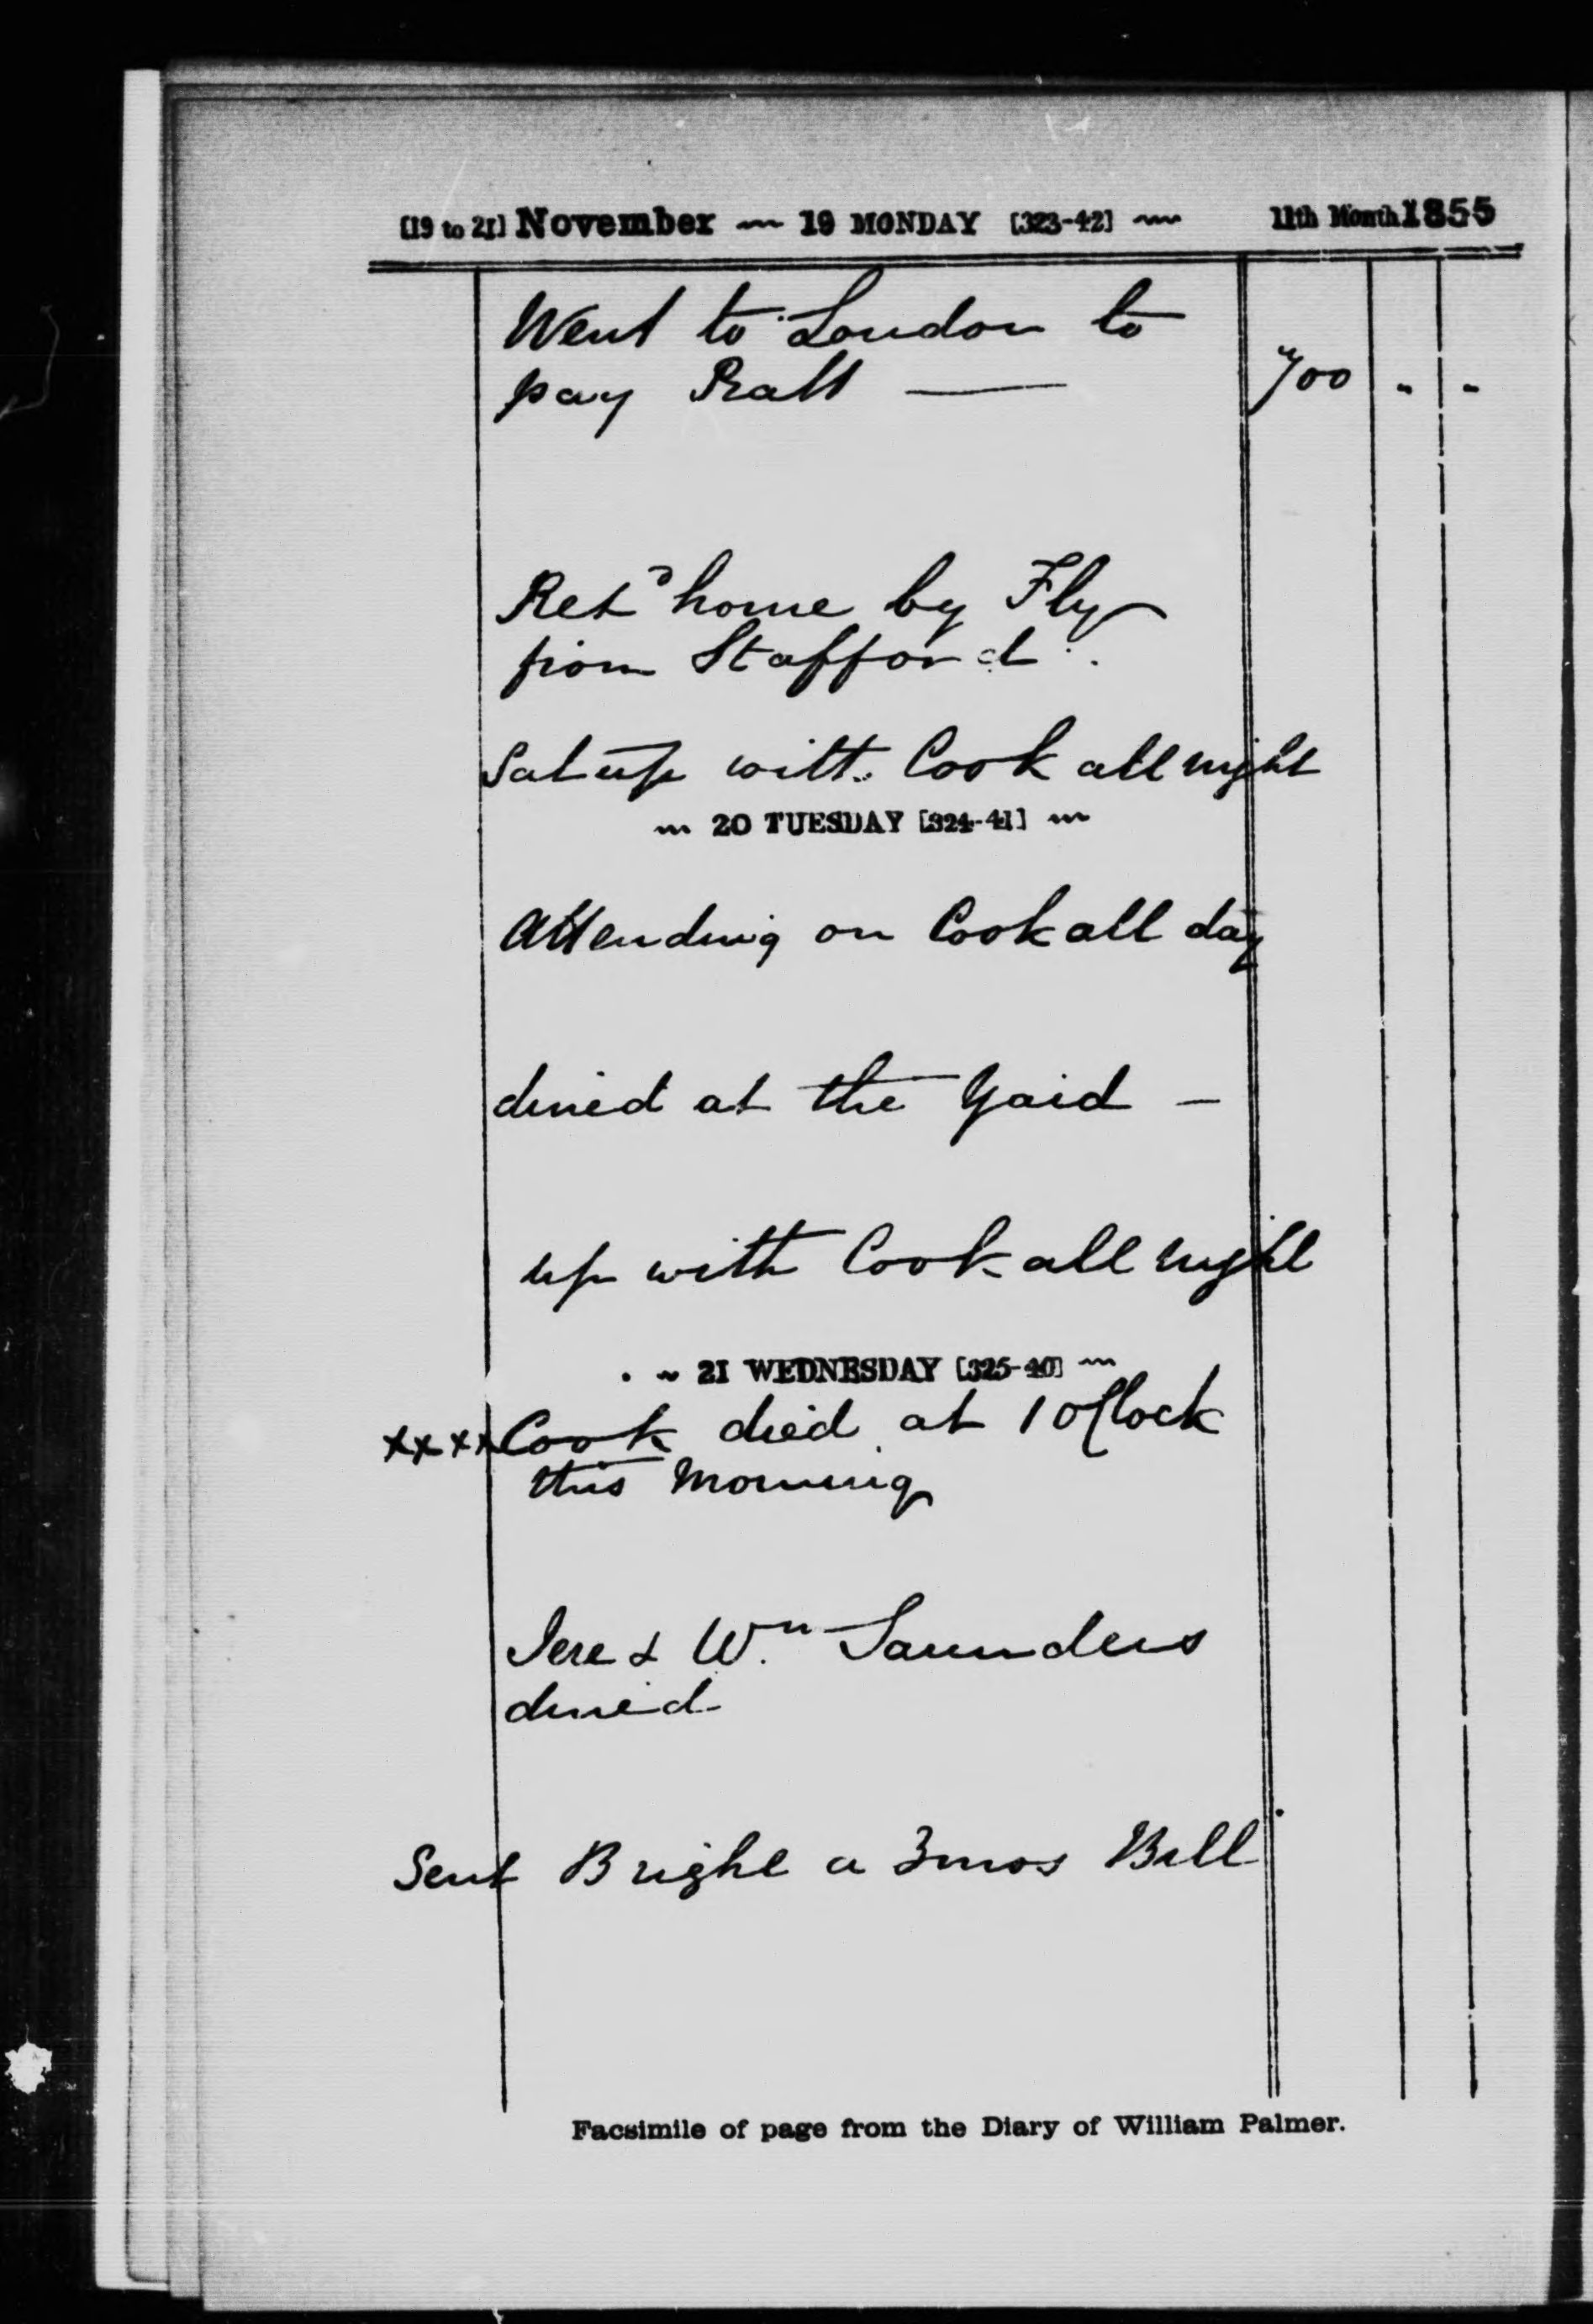 [19 to 21] November — 19 MONDAY [323-42] — 11th Month 1855
Went to London to
pay Pratt — 700 - -
Retd home by Fly
from Stafford.
Sat up with Cook all night
20 TUESDAY [324-41]
Attending on Cook all day
dined at the Yard —
up with Cook all night
21 WEDNESDAY [325-40]
xxxx Cook died at 1 oClock
this Morning
Jere & Wm Saunders
dined
Sent Bright a 3mos Bill
Facsimile of page from the Diary of William Palmer.